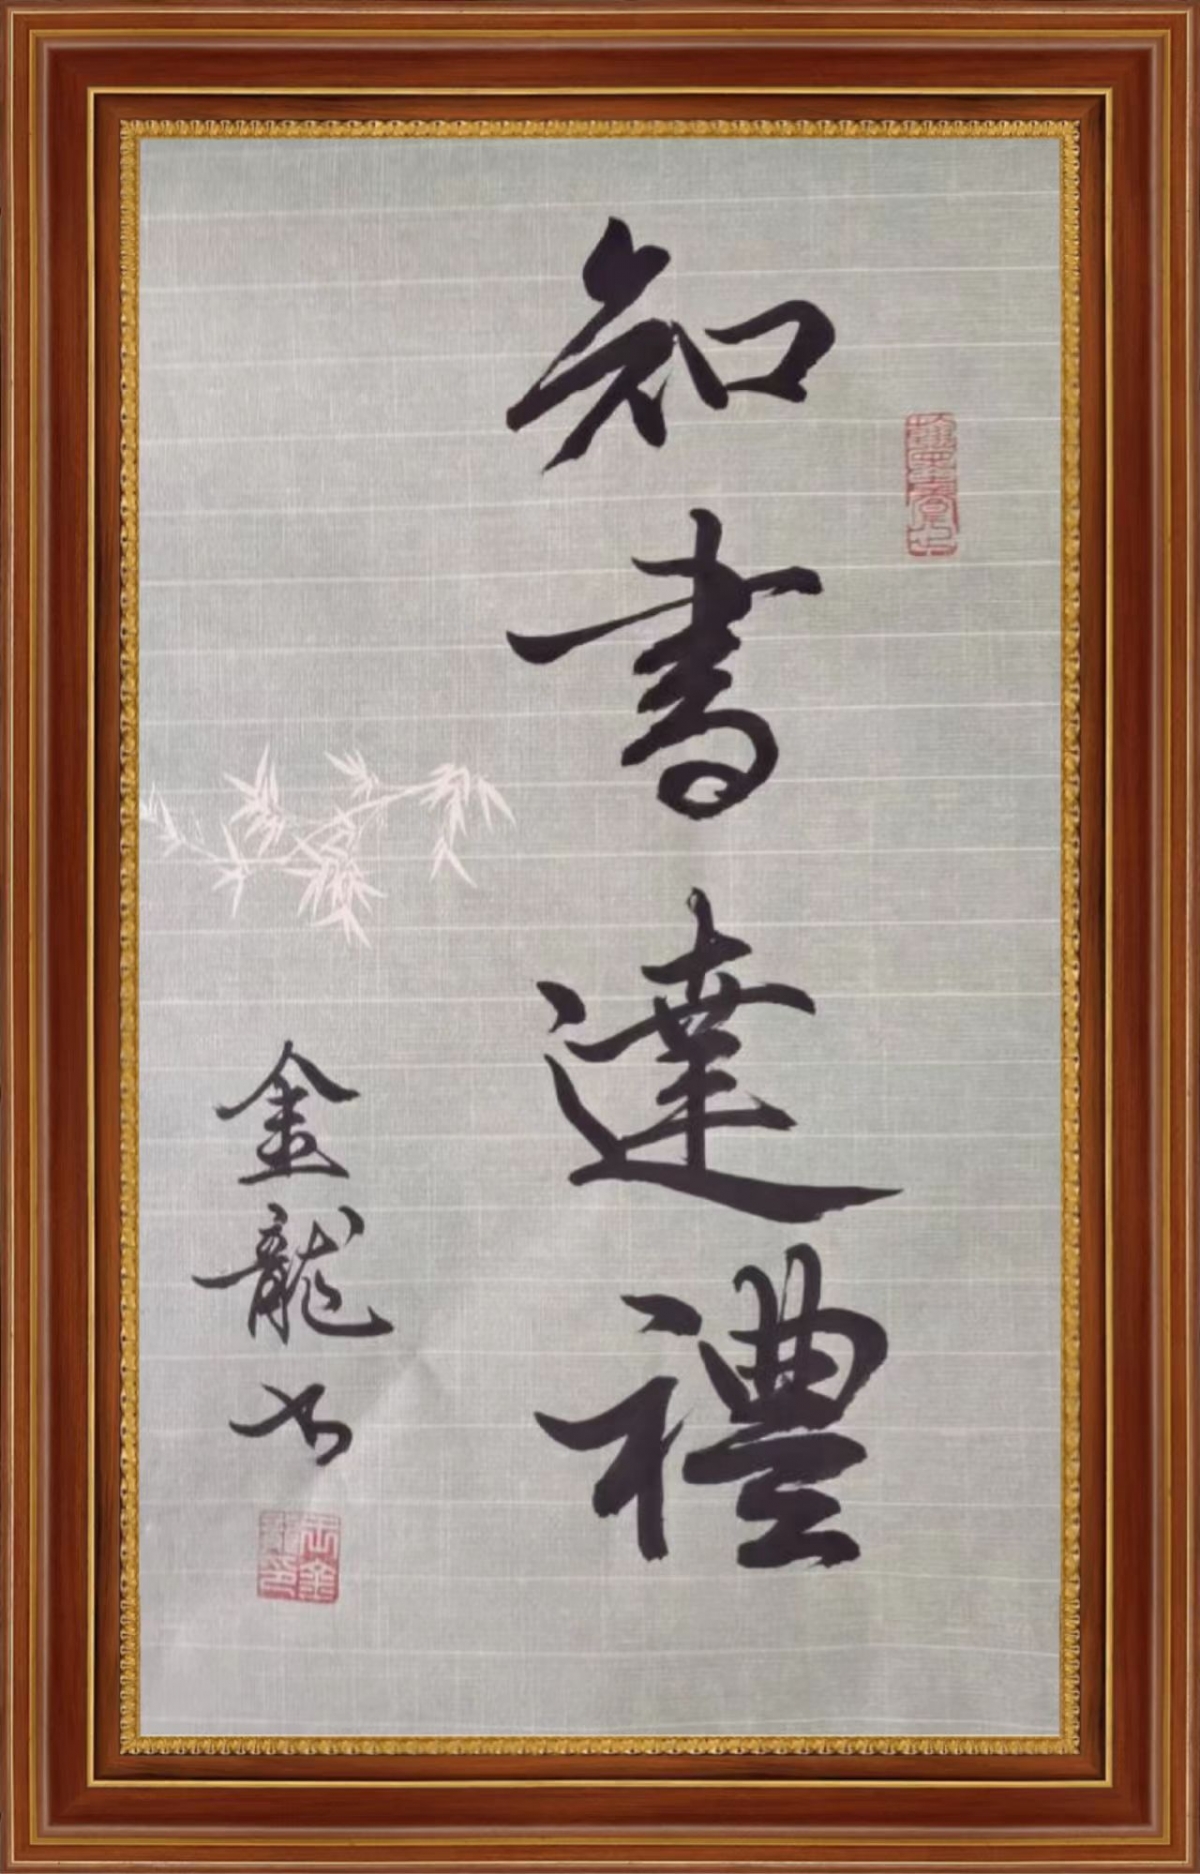 知書達禮
金龍书